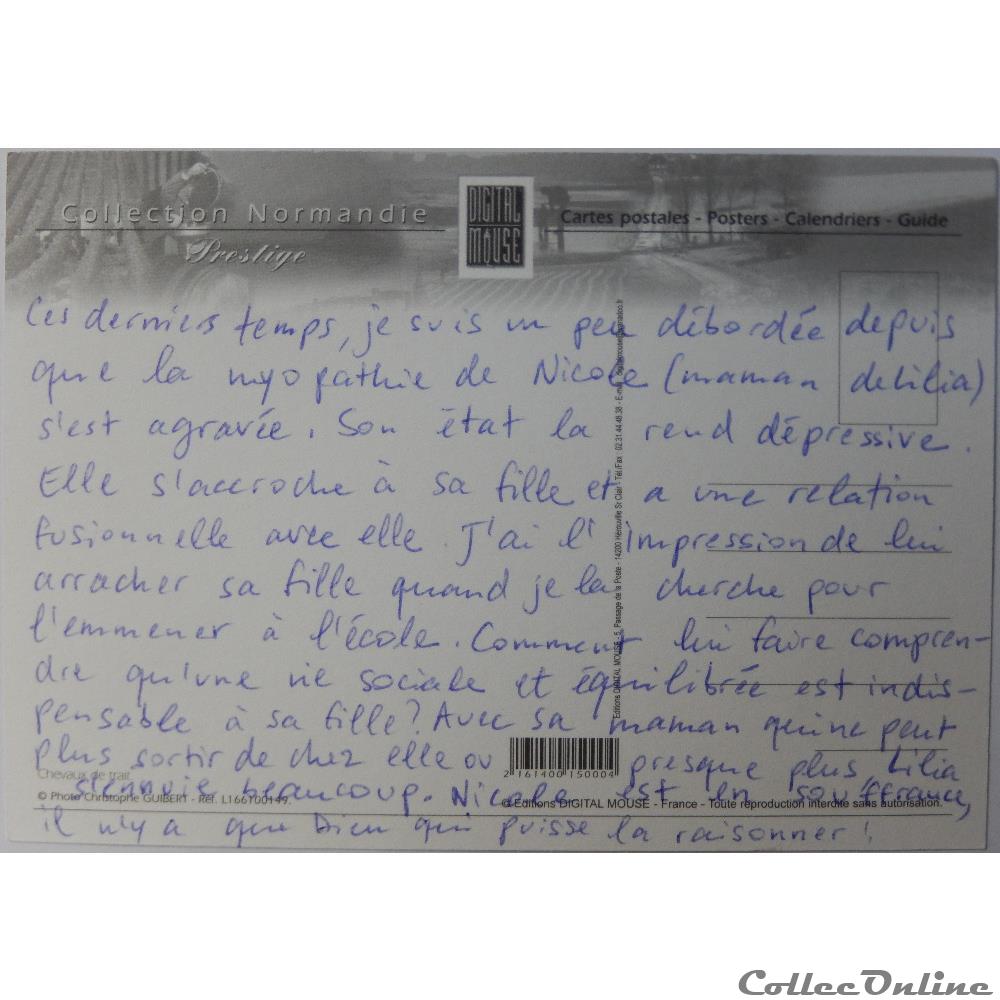 Collection Normandie
Prestige
DIGITAL
MOUSE
Cartes postales - Posters - Calendriers - Guide
Ces derniers temps, je suis un peu débordée depuis
que la myopathie de Nicole (maman de Lilia)
s'est agravée. Son état la rend dépressive.
Elle s'accroche à sa fille et a une relation
fusionnelle avec elle. J'ai l'impression de lui
arracher sa fille quand je la cherche pour
l'emmener à l'école. Comment lui faire compren-
dre qu'une vie sociale et équilibrée est indis-
pensable à sa fille? Avec sa maman qui ne peut
plus sortir de chez elle ou presque plus Lilia
s'ennuie beaucoup. Nicole est en souffrance,
il n'y a que Dieu qui puisse la raisonner!
Editions DIGITAL MOUSE - 5, Passage de la Poste - 14200 Hérouville St Clair - Tél/Fax 02.31.44.48.38 - E-mail
2 161400 150004
Chevaux de trait
© Photo Christophe GUIBERT - Réf. L166100149.
© Editions DIGITAL MOUSE - France - Toute reproduction interdite sans autorisation.
CollecOnline